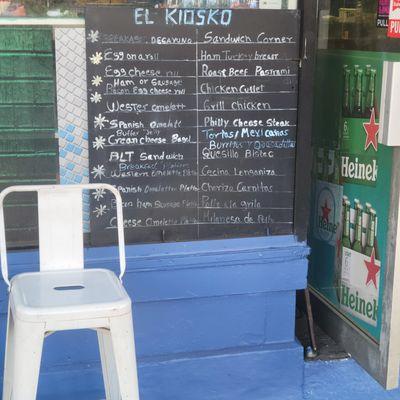 EL KIOSKO
BREAKFAST, DESAYUNO
Egg on a roll
Egg cheese roll
Ham or Sausage
Bacon Egg cheese roll
Wester omelett
Spanish Omelett
Butter Jelly
Cream Cheese Bagel
BLT Sandwich
Spanish Omelette Plate
Ham Sausage
Cheese Omelette Plate
Sandwich Corner
Ham Turkey breast
Roast Beef Pastrami
Chicken Cutlet
Grill chicken
Philly Cheese Steak
Tortas Mexicanas
Burritos y Quesadillas
Quesillo Bistec
Chorizo Carnitas
Cecina Longaniza
Pollo a la grilla
Milanesa de Pollo
PULL
6
Heineken
Heineken
Heineken